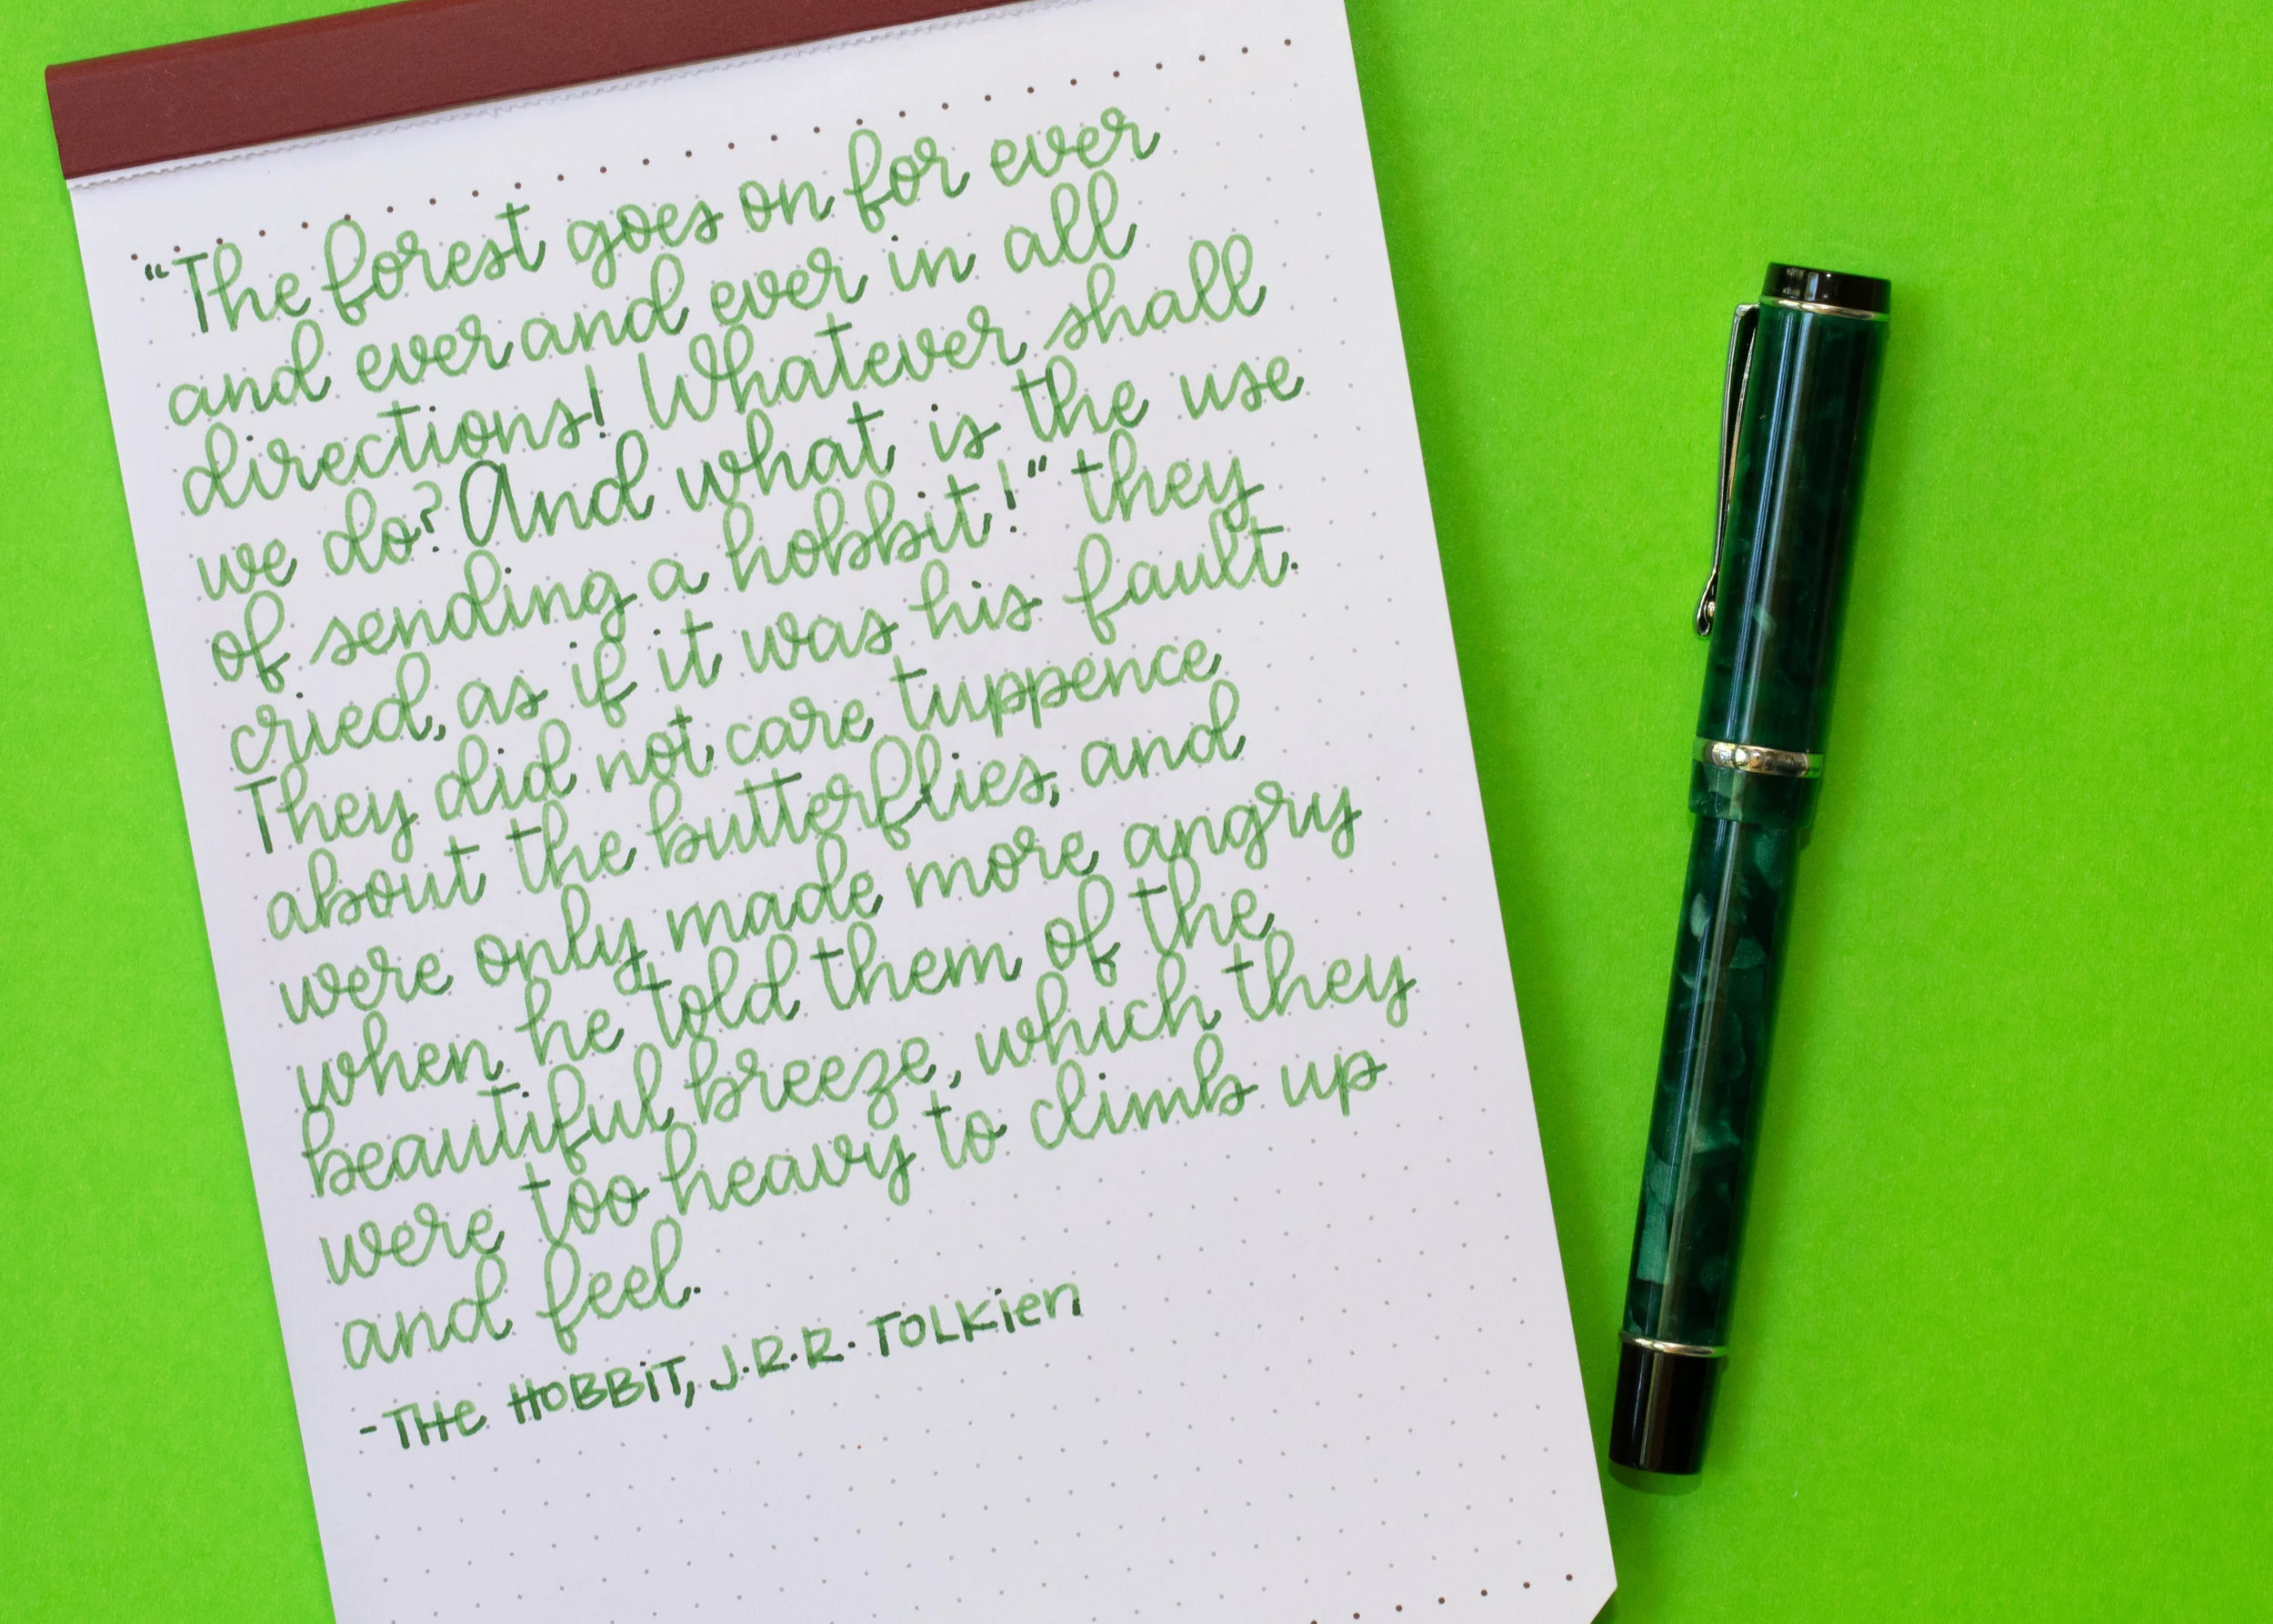 "The forest goes on for ever
and ever and ever in all
directions! Whatever shall
we do? And what is the use
of sending a hobbit!" they
cried, as if it was his fault.
They did not care tuppence
about the butterflies, and
were only made more angry
when he told them of the
beautiful breeze, which they
were too heavy to climb up
and feel.
-THe HOBBiT, J.R.R. TOLKien